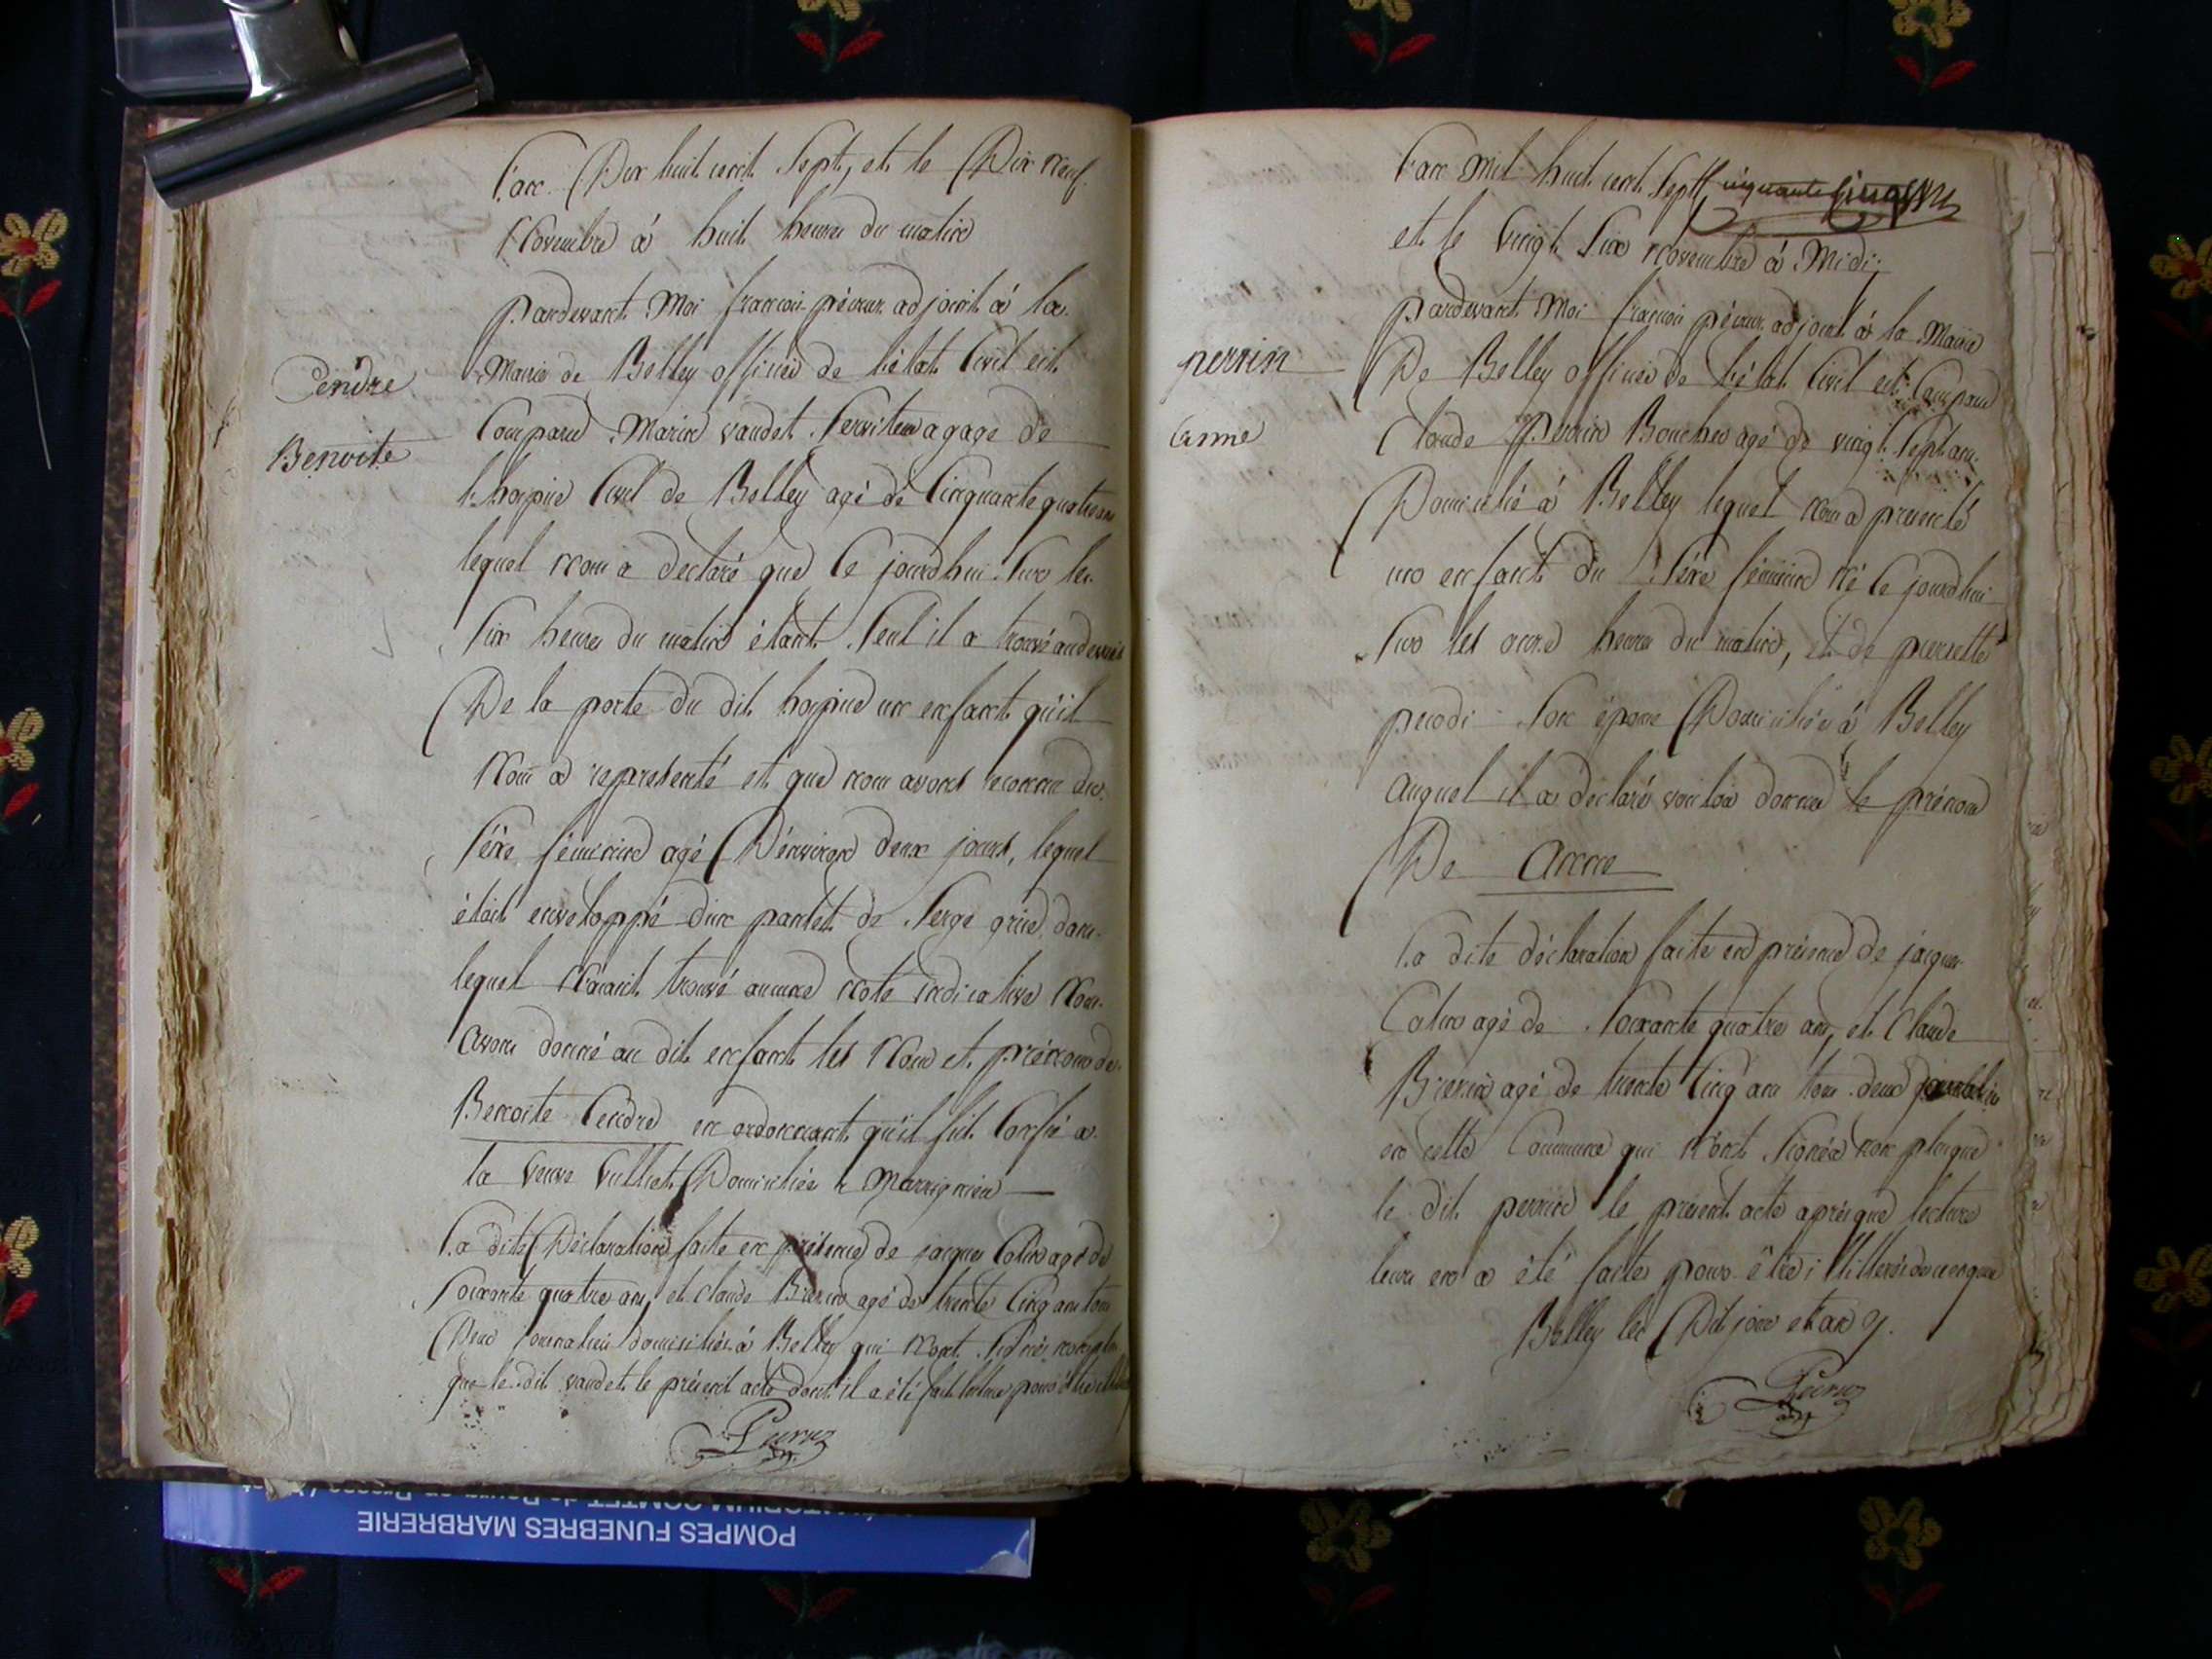 L'an Dix huit cent Sept, et le Dix neuf
Novembre à huit heures du matin
pardevant Moi françois pécour adjoint à la
Cendre
Mairie de Belley officier de L'état Civil est
Benoite
Comparu Marin vaudet Serviteur a gage de
L'hospice Civil de Belley agé de Cinquante quatre ans
lequel nous a declaré que Ce jourdhui Sur les
Six heures du matin étant Seul il a trouvé au devant
De la porte du dit hospice un enfant qu'il
Nous a representé et que nous avons reconnu du
Séxe féminin agé D'environ deux jours, lequel
était enveloppé d'un pantet de Serge grise dans
lequel N'aiant trouvé aucune Note indicative Nous
avons donné au dit enfant les Nom et prénom de
Benoite Cendre en ordonnant qu'il fut Confié a
la veuve Vulliet Domiciliée a Marrignieu
La dite Déclaration faite en présence de jacques Colin agé de
Soixante quatre ans, et claude agé de trente Cinq ans tous
Deux journaliers domiciliés à Belley qui N'ont Signés non plus
que le dit vaudet le présent acte dont il a été fait lecture pour être
L'an Mil huit cent Sept cinquante cinq
et le vingt Six novembre à Midi
pardevant Moi françois pécour adjoint à la Mairie
perrin
De Belley officier de L'état Civil est Comparu
anne
Claude Perrin Boucher agé de vingt Sept ans
Domicilié à Belley lequel Nous a presenté
un enfant du Séxe féminin Né Ce jourdhui
Sur les onze heures du matin, et de pierrette
Son épouse Domiciliée à Belley
auquel il a declaré vouloir donner le prénom
De anne
La dite déclaration faite en présence de jacques
Colin agé de Soixante quatre ans, et Claude
agé de trente Cinq ans tous deux journaliers
en cette Commune qui N'ont Signés non plus que
le dit perrin le présent acte après que lecture
leur en a été faite pour être illitterés de ce enquis
Belley les Dit jour et an
POMPES FUNEBRES MARBRERIE